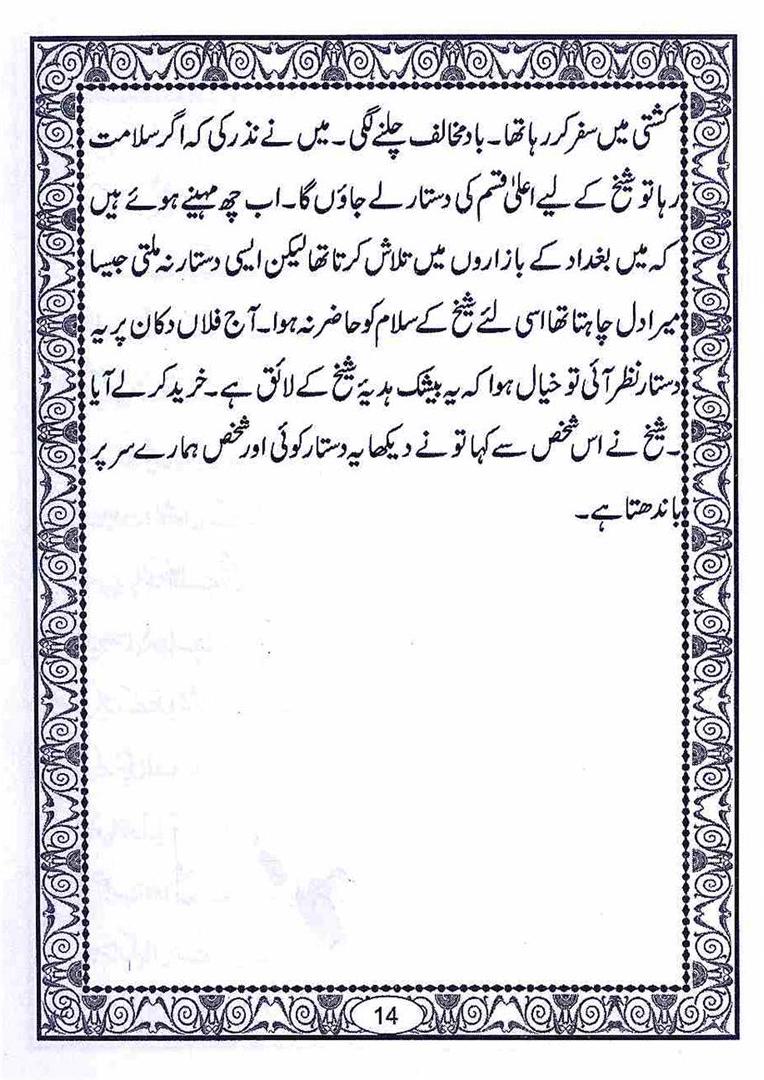 کشتی میں سفر کر رہا تھا۔ باد مخالف چلنے لگی۔ میں نے نذر کی کہ اگر سلامت
رہا تو شیخ کے لیے اعلیٰ قسم کی دستار لے جاؤں گا۔ اب چھ مہینے ہوئے ہیں
کہ میں بغداد کے بازاروں میں تلاش کرتا تھا لیکن ایسی دستار نہ ملتی جیسا
میرا دل چاہتا تھا اسی لئے شیخ کے سلام کو حاضر نہ ہوا۔ آج فلاں دکان پر یہ
دستار نظر آئی تو خیال ہوا کہ یہ بیشک ہدیۂ شیخ کے لائق ہے۔ خرید کر لے آیا
۔ شیخ نے اس شخص سے کہا تو نے دیکھا یہ دستار کوئی اور شخص ہمارے سر پر
باندھتا ہے۔
14